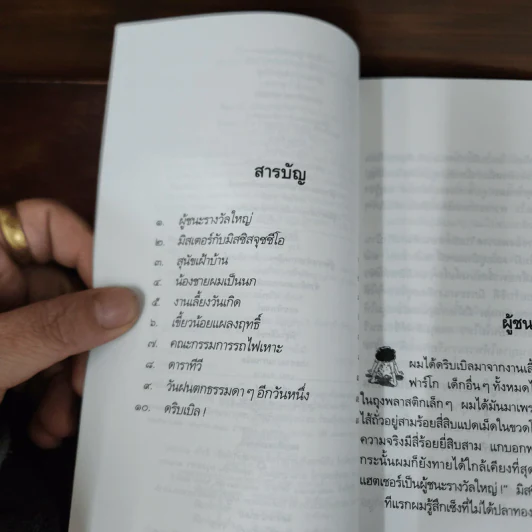 สารบัญ
๑. ผู้ชนะรางวัลใหญ่
๒. มิสเตอร์กับมิสซิสจุซซีโอ
๓. สุนัขเฝ้าบ้าน
๔. น้องชายผมเป็นนก
๕. งานเลี้ยงวันเกิด
๖. เขี้ยวน้อยแผลงฤทธิ์
๗. คณะกรรมการรถไฟเหาะ
๘. ดาราทีวี
๙. วันฝนตกธรรมดาๆ อีกวันหนึ่ง
๑๐. ดริบเบิล!
ผู้ชนะ
ผมได้ดริบเบิลมาจากงานเลี้
ฟาร์โก เด็กอื่นๆ ทั้งหมดไ
ในถุงพลาสติกเล็กๆ ผมได้มันมาเพร
ไส้ถั่วอยู่สามร้อยสี่สิบแปดเม็ดในขวดโ
ความจริงมีสี่ร้อยยี่สิบสาม แกบอกท
กระนั้นผมก็ยังทายได้ใกล้เคียงที่สุด
แฮตเชอร์เป็นผู้ชนะรางวัลใหญ่!" มิส
ทีแรกผมรู้สึกเซ็งที่ไม่ได้ปลาทอง